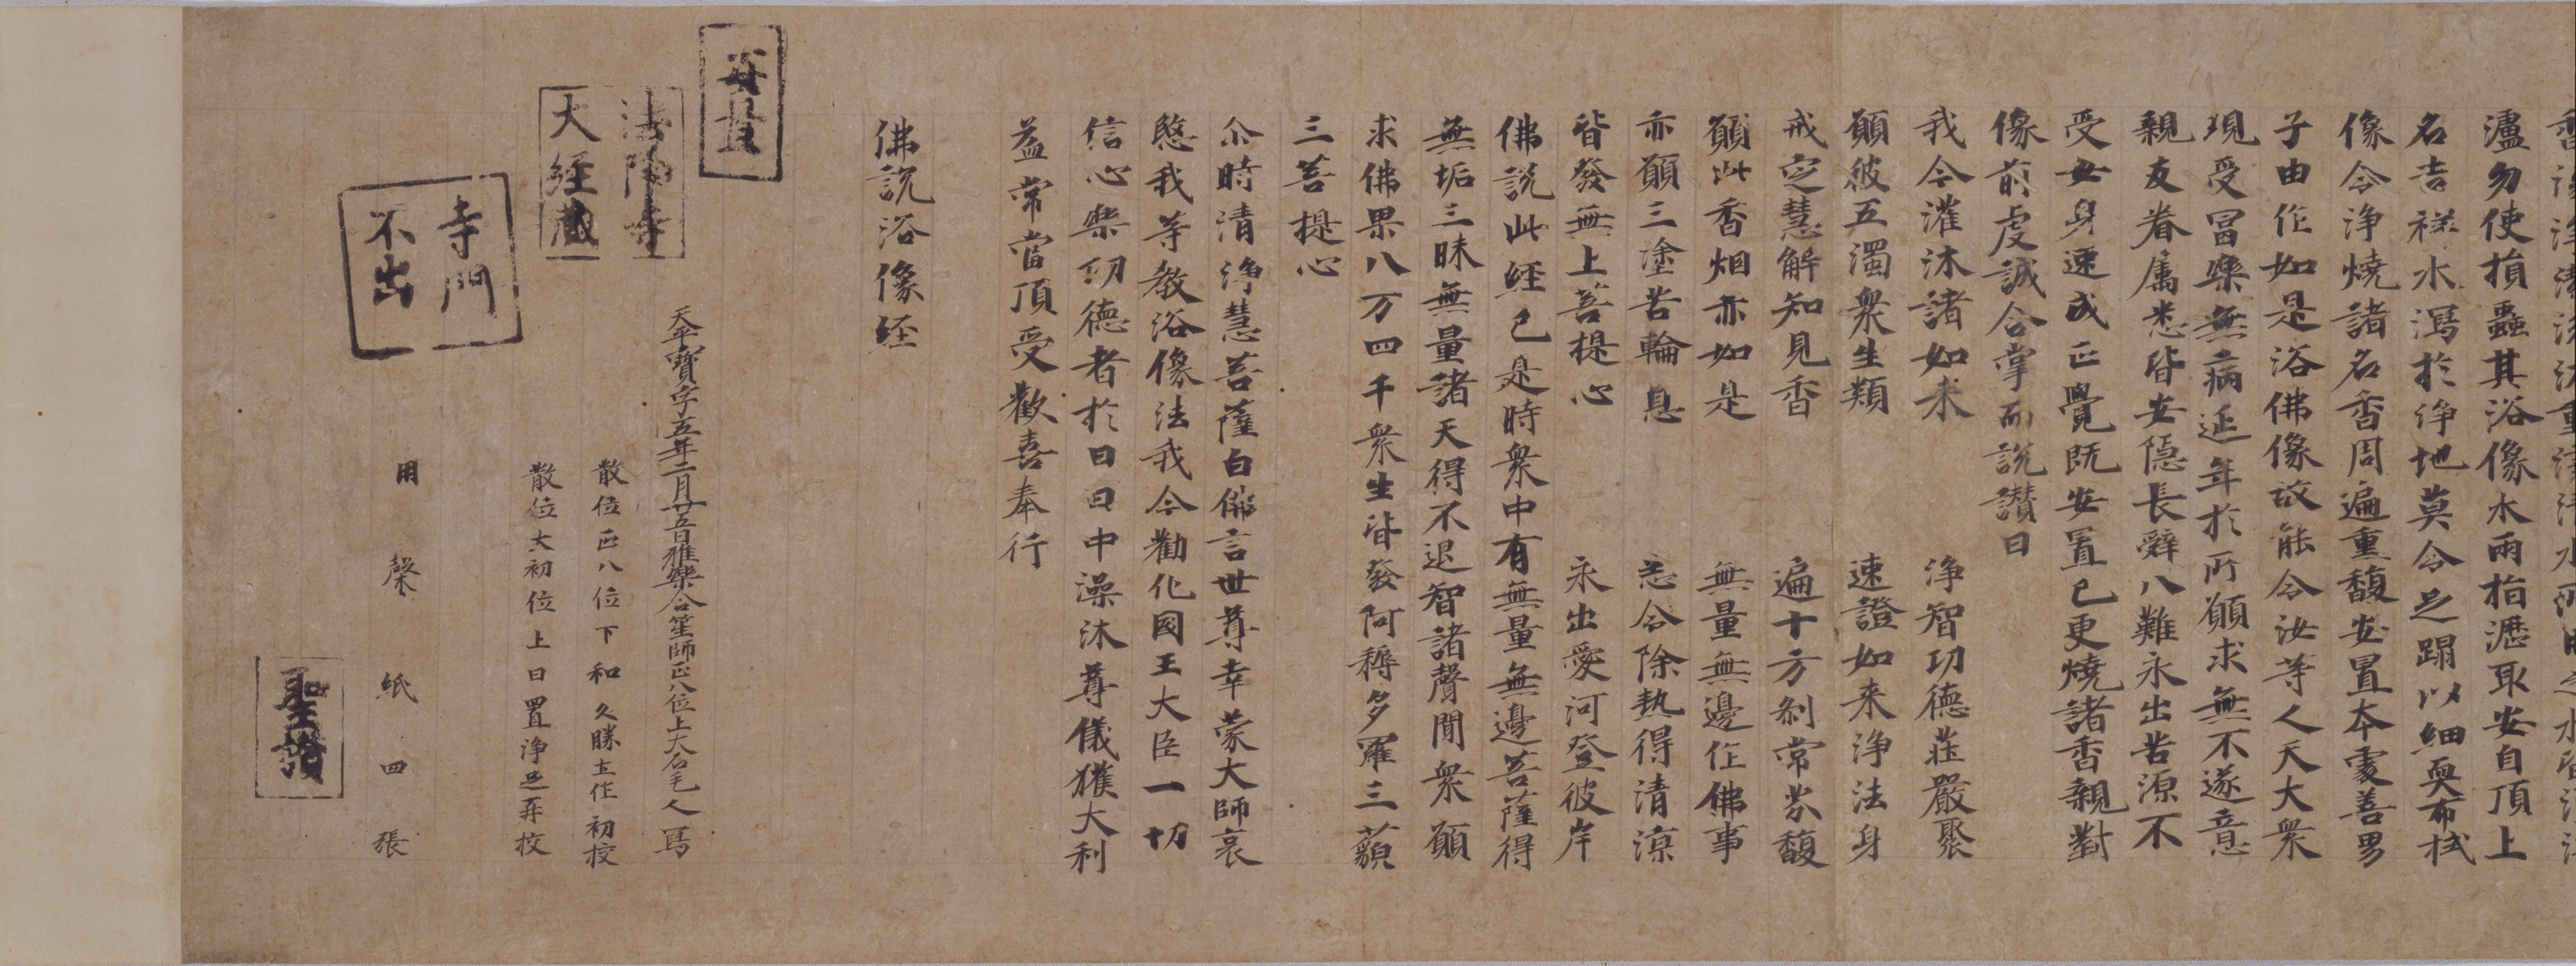 瀘勿使損蟲其浴像水兩指瀝取安自頂上
名吉祥水瀉於淨地莫令足蹋以細耎布拭
像令淨燒諸名香周遍重馥安置本處善男
子由作如是浴佛像故能令汝等人天大衆
現受冨樂無病延年於所願求無不遂意
親友眷属悉皆安隠長辞八難永出苦源不
受女身速成正覺既安置已更燒諸香親對
像前虔誠合掌而說讃曰
我今灌沐諸如来　淨智功德莊嚴聚
願彼五濁衆生類　速證如来淨法身
戒定慧解知見香　遍十方刹常芬馥
願此香烟亦如是　無量無邊作佛事
亦願三塗苦輪息　悉令除熱得清涼
皆發無上菩提心　永出愛河登彼岸
佛說此経已是時衆中有無量無邊菩薩得
無垢三昧無量諸天得不退智諸聲聞衆願
求佛果八万四千衆生皆發阿耨多羅三藐
三菩提心
尒時清淨慧菩薩白佛言世尊幸蒙大師哀
愍我等教浴像法我今勸化國王大臣一切
信心樂功德者於日日中澡沐尊儀獲大利
益常當頂受歡喜奉行
佛說浴像経
法隆寺
大経蔵
天平寶字五年二月廿五日雅樂合笙師正八位上大石毛人寫
散位正八位下和久勝土作初挍
散位大初位上日置淨足再挍
寺門
不出
用 縏 紙 四 張
聖